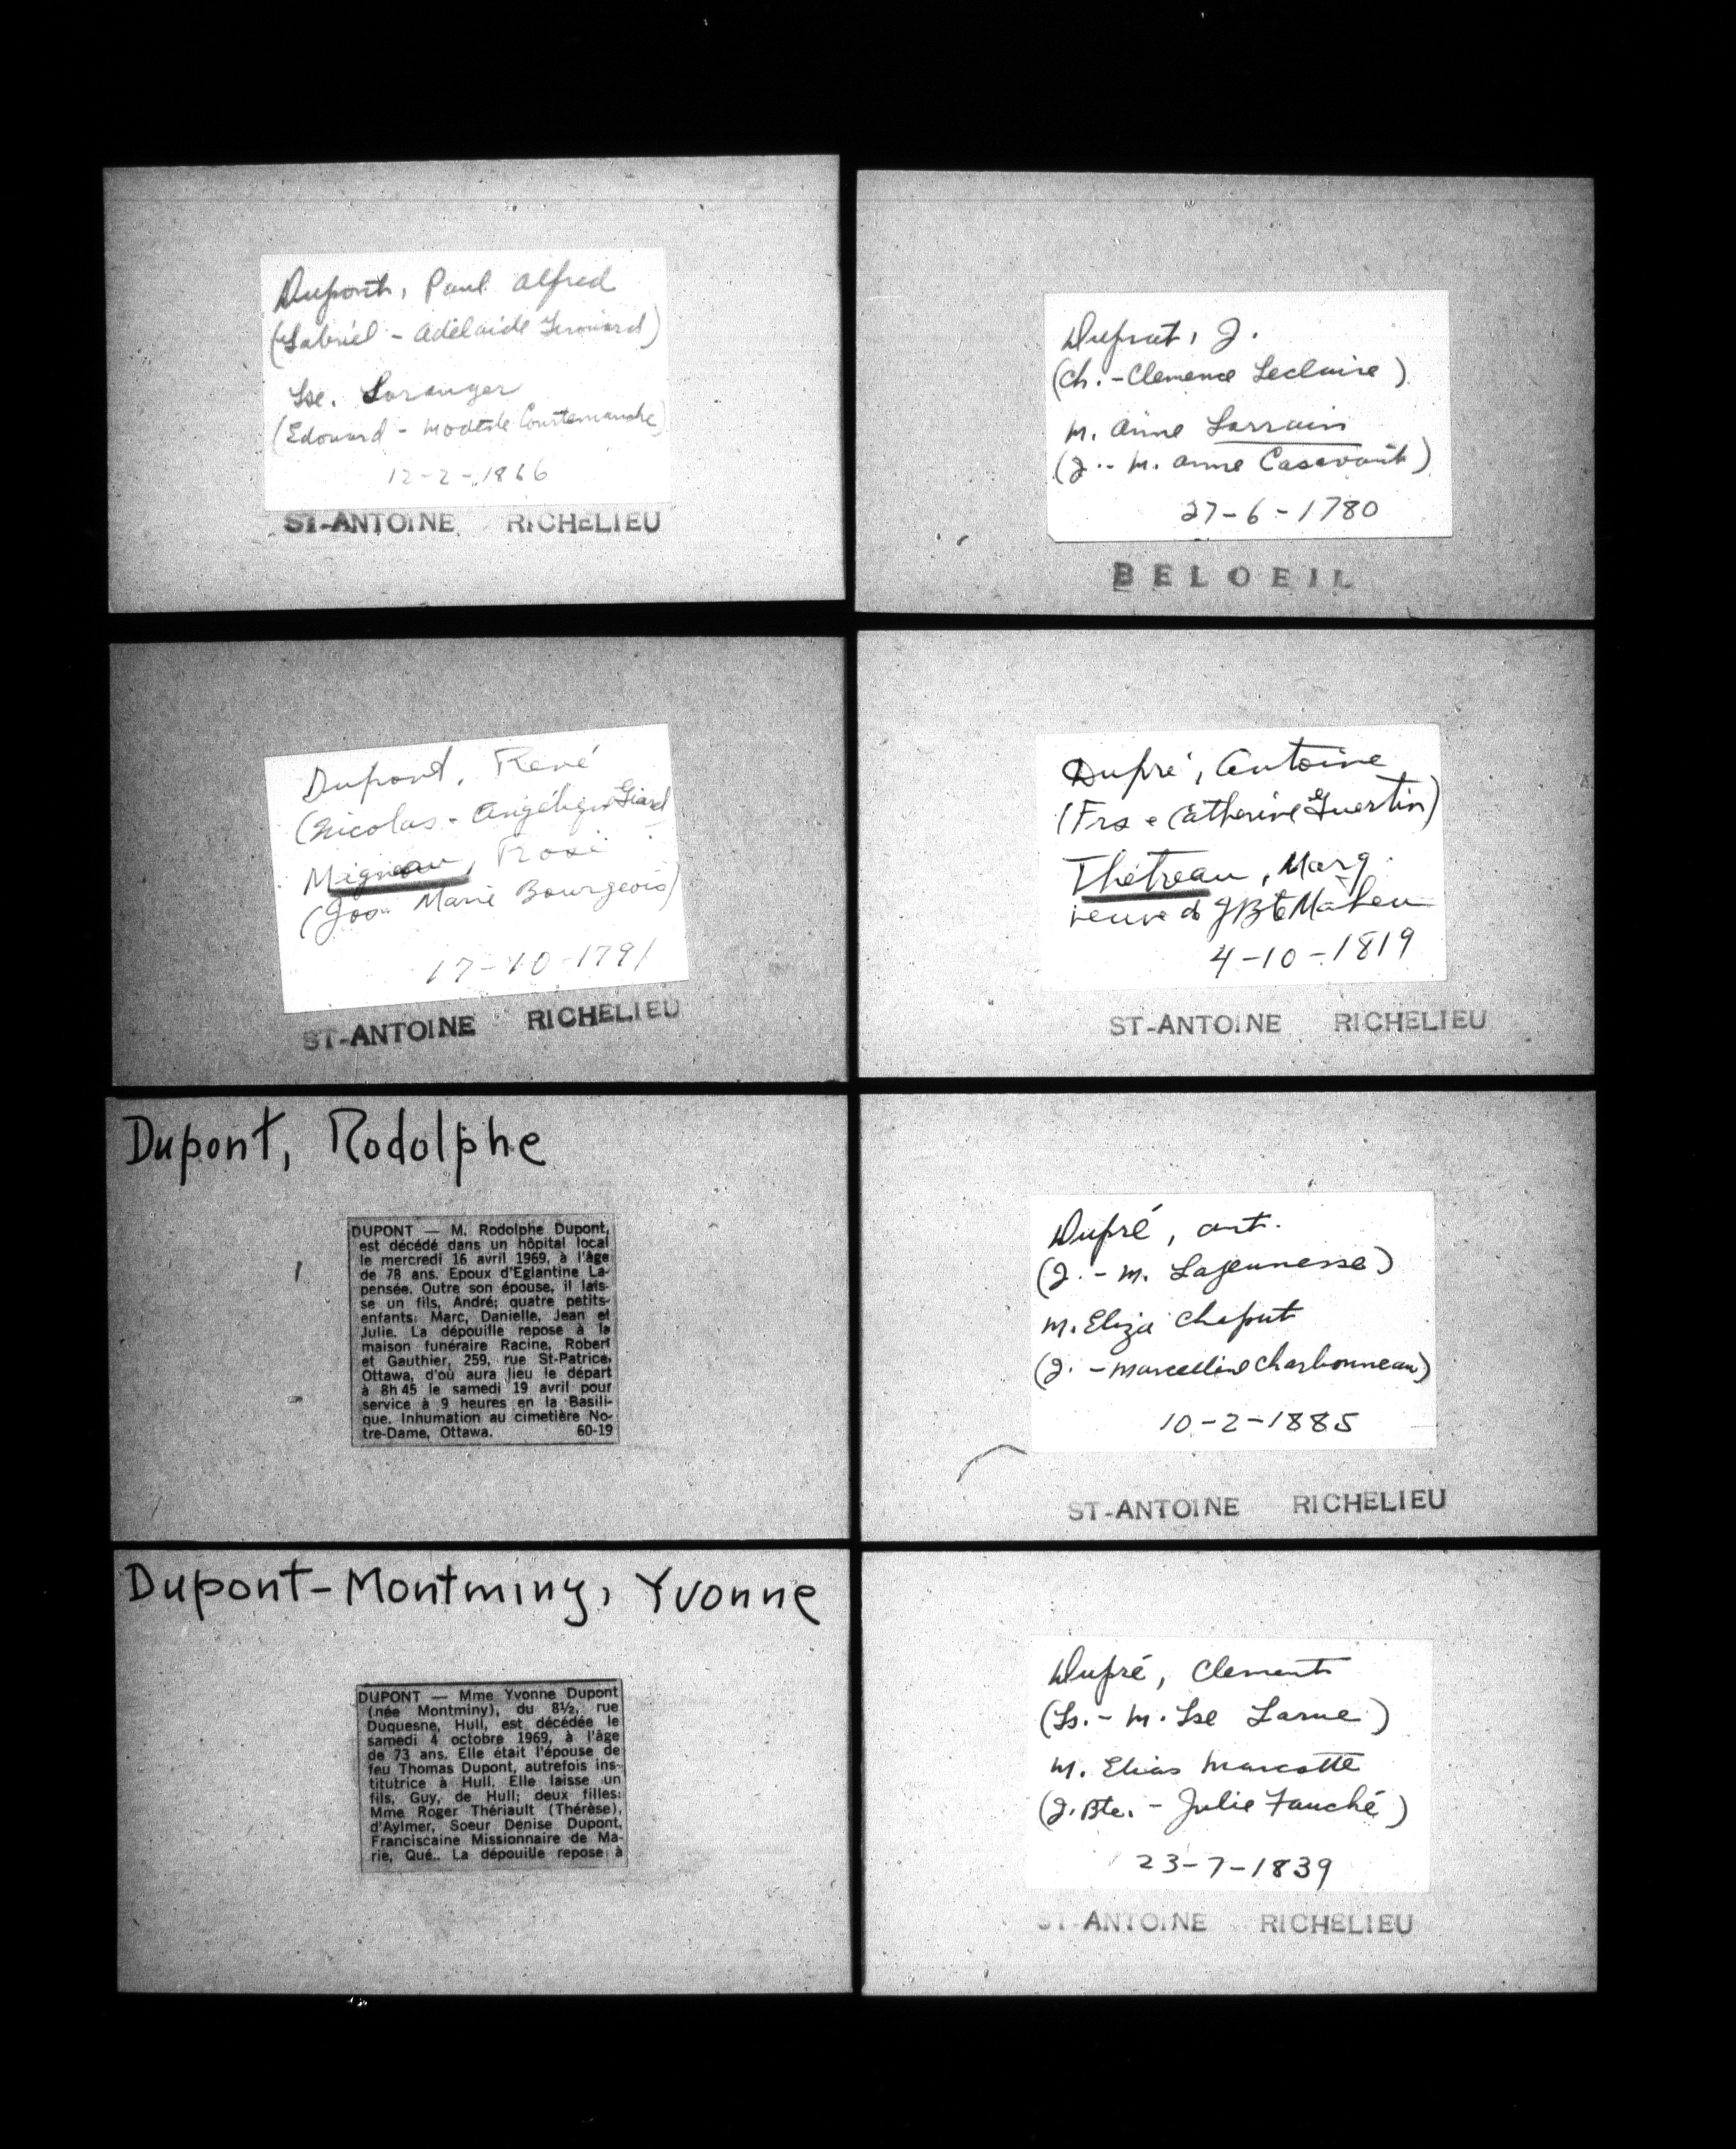 Dupont, Paul Alfred
(Gabriel - Adélaide Girouard)
Lse. Loranger
(Edouard - Modeste Courtemanche)
12-2-1866
ST-ANTOINE RICHELIEU
Duprat, J.
(Ch. - Clemence Leclaire)
M. Anne Lorrain
(J. - M. Anne Casavant)
27-6-1780
BELOEIL
Dupont, René
(Nicolas - Angélique Giard
Migneau, Rose
(Jos. Marie Bourgeois)
17-10-1791
ST-ANTOINE RICHELIEU
Dupré, Antoine
(Frs - Catherine Guertin)
Thétreau, Marg.
veuve d JBte Maheu
4-10-1819
ST-ANTOINE RICHELIEU
Dupont, Rodolphe
DUPONT — M. Rodolphe Dupont,
est décédé dans un hôpital local
le mercredi 16 avril 1969, à l'âge
de 78 ans. Epoux d'Eglantine La-
pensée. Outre son épouse, il lais-
se un fils, André; quatre petits-
enfants: Marc, Danielle, Jean et
Julie. La dépouille repose à la
maison funéraire Racine, Robert
et Gauthier, 259, rue St-Patrice,
Ottawa, d'où aura lieu le départ
à 8h 45 le samedi 19 avril pour
service à 9 heures en la Basili-
que. Inhumation au cimetière No-
tre-Dame, Ottawa. 60-19
Dupré, Ant.
(J. - M. Lajeunesse)
M. Eliza Chaput
(J. - Marcelline Charbonneau)
10-2-1885
ST-ANTOINE RICHELIEU
Dupont-Montminy, Yvonne
DUPONT — Mme Yvonne Dupont
(née Montminy), du 8½, rue
Duquesne, Hull, est décédée le
samedi 4 octobre 1969, à l'âge
de 73 ans. Elle était l'épouse de
feu Thomas Dupont, autrefois ins-
titutrice à Hull. Elle laisse un
fils, Guy, de Hull; deux filles:
Mme Roger Thériault (Thérèse),
d'Aylmer, Soeur Denise Dupont,
Franciscaine Missionnaire de Ma-
rie, Qué.. La dépouille repose à
Dupré, Clement
(Ls. - M. Lse Larue)
M. Elias Marcotte
(J. Bte. - Julie Fauché)
23-7-1839
ST-ANTOINE RICHELIEU